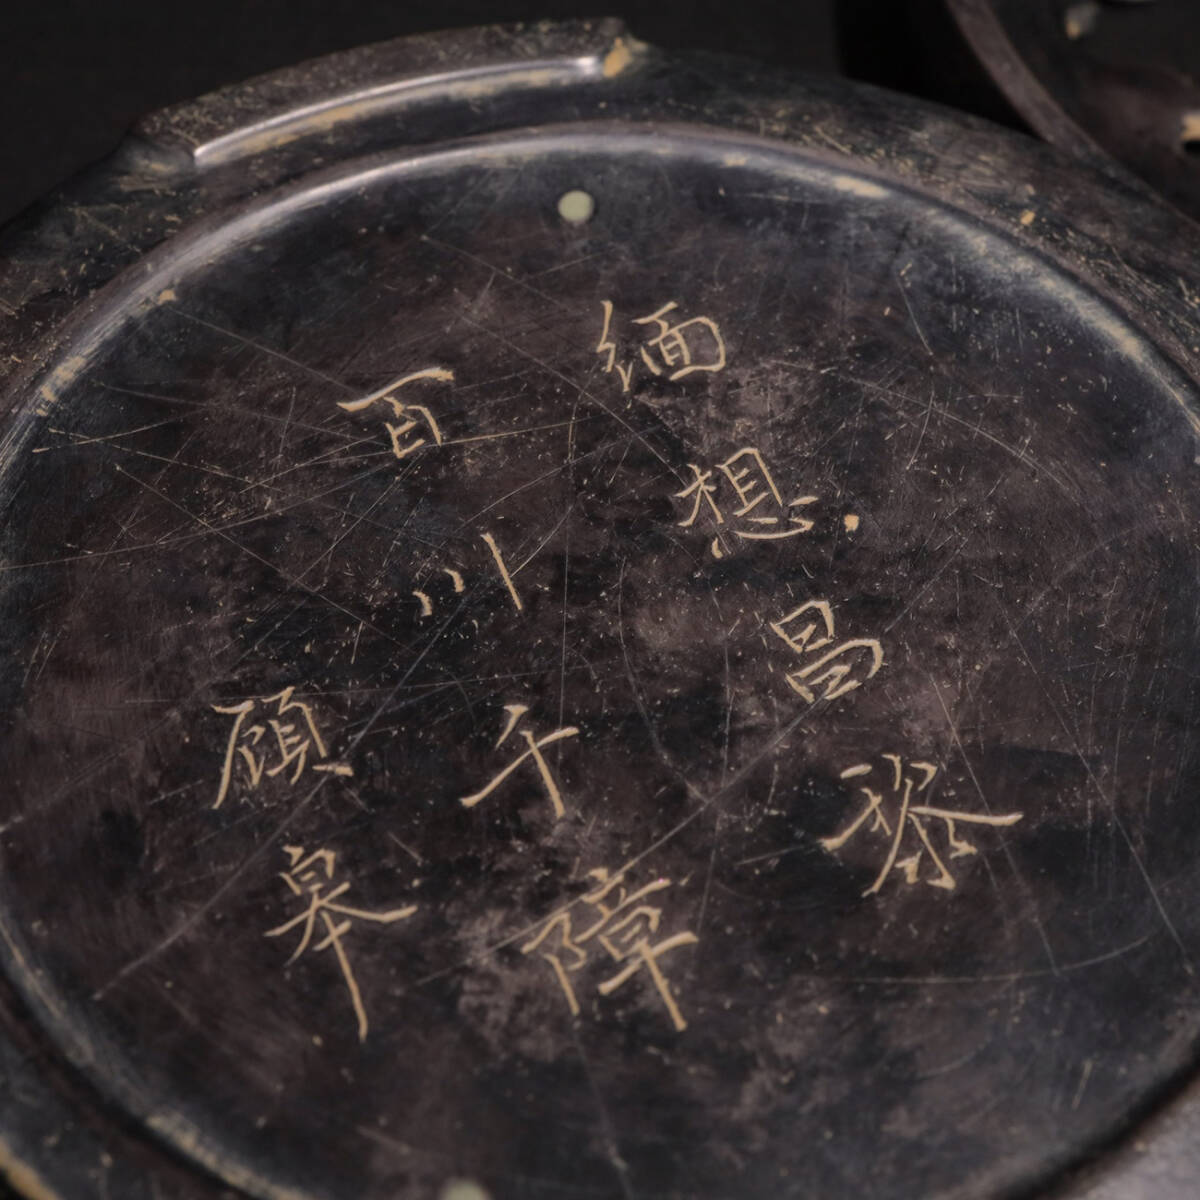 缅想昌黎
百川千障
顾皋